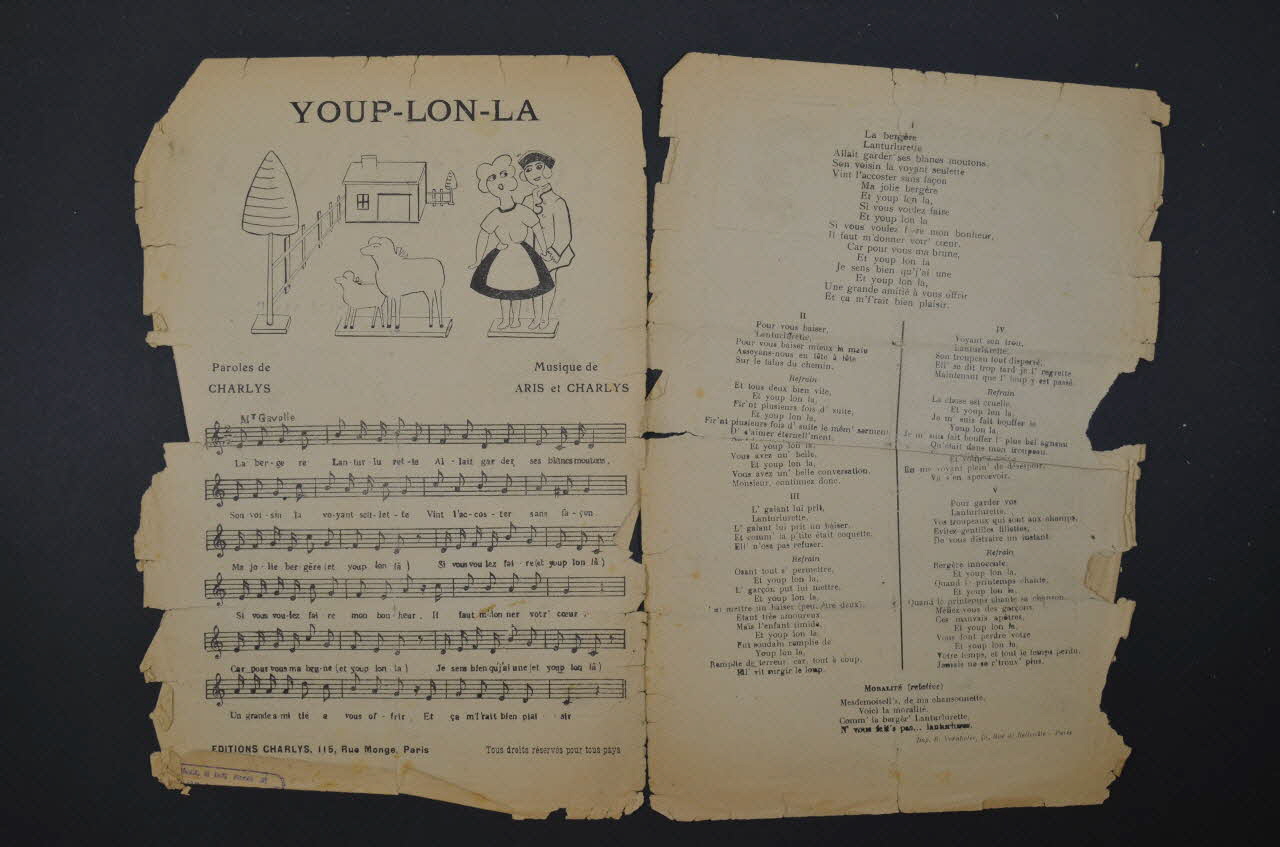 YOUP-LON-LA
Paroles de
CHARLYS
Musique de
ARIS et CHARLYS
Mᵀ Gavotte
La ber-ge re Lan-tur-lu ret-te Al-lait gar der ses blancs moutons,
Son voi-sin la vo-yant seu-let-te Vint l'ac-cos-ter sans fa-çon
Ma jo-lie ber gère (et youp lon la) Si vous vou lez fai-re (et youp lon la)
Si vous vou-lez fai re mon bon-heur, Il faut m'don ner votr' cœur,
Car pour vous ma bru-ne (et youp lon la) Je sens bien qu'j'ai une (et youp lon la)
Un grande a mi tié a vous of-frir, Et ça m'f'rait bien plai sir
EDITIONS CHARLYS, 115, Rue Monge, Paris
Tous droits réservés pour tous pays
I
La bergère
Lanturlurette
Allait garder ses blancs moutons,
Son voisin la voyant seulette
Vint l'accoster sans façon
Ma jolie bergère
Et youp lon la,
Si vous voulez faire
Et youp lon la
Si vous voulez f're mon bonheur,
Il faut m'donner votr' cœur.
Car pour vous ma brune,
Et youp lon la
Je sens bien qu'j'ai une
Et youp lon la,
Une grande amitié à vous offrir
Et ça m'f'rait bien plaisir.
II
Pour vous baiser,
Lanturlurette,
Pour vous baiser mieux la main
Asseyons-nous en tête à tête
Sur le talus du chemin.
Refrain
Et tous deux bien vite,
Et youp lon la,
Fir'nt plusieurs fois d' suite,
Et youp lon la,
Fir'nt plusieurs fois d' suite le mêm' serment
D' s'aimer éternell'ment.
Et youp lon la,
Vous avez un' belle,
Et youp lon la,
Vous avez un' belle conversation.
Monsieur, continuez donc.
III
L' galant lui prit,
Lanturlurette,
L' galant lui prit un baiser.
Et comm' la p'tite était coquette,
Ell' n'osa pas refuser.
Refrain
Osant tout s' permettre,
Et youp lon la,
L' garçon put lui mettre,
Et youp lon la,
mettre un baiser (peut-être deux).
Etant très amoureux
Mais l'enfant timide,
Et youp lon la,
Fut soudain remplie de
Youp lon la,
Remplie de terreur, car, tout à coup,
Ell' vit surgir le loup.
IV
Voyant son trou,
Lanturlurette,
Son troupeau tout dispersé,
Ell' se dit trop tard je l' regrette
Maintenant que l' loup y est passé.
Refrain
La chose est cruelle,
Et youp lon la,
Je m' suis fait bouffer le
Youp lon la,
Je m' suis fait bouffer l' plus bel agneau
Qu'était dans mon troupeau.
En me voyant plein' de désespoir,
Va s'en apercevoir.
V
Pour garder vos
Lanturlurette,
Vos troupeaux qui sont aux champs,
Evitez gentilles fillettes,
De vous distraire un instant.
Refrain
Bergère innocente,
Et youp lon la,
Quand le printemps chante,
Et youp lon la,
Quand le printemps chante sa chanson.
Méfiez-vous des garçons.
Ces mauvais apôtres,
Et youp lon la,
Vous font perdre votre
Et youp lon la,
Votre temps, et tout le temps perdu,
Jamais ne se r'trouv' plus.
MORALITÉ (relative)
Mesdemoisell's, de ma chansonnette,
Voici la moralité,
Comm' la bergèr' Lanturlurette,
N' vous fait's pas... lanturlurer.